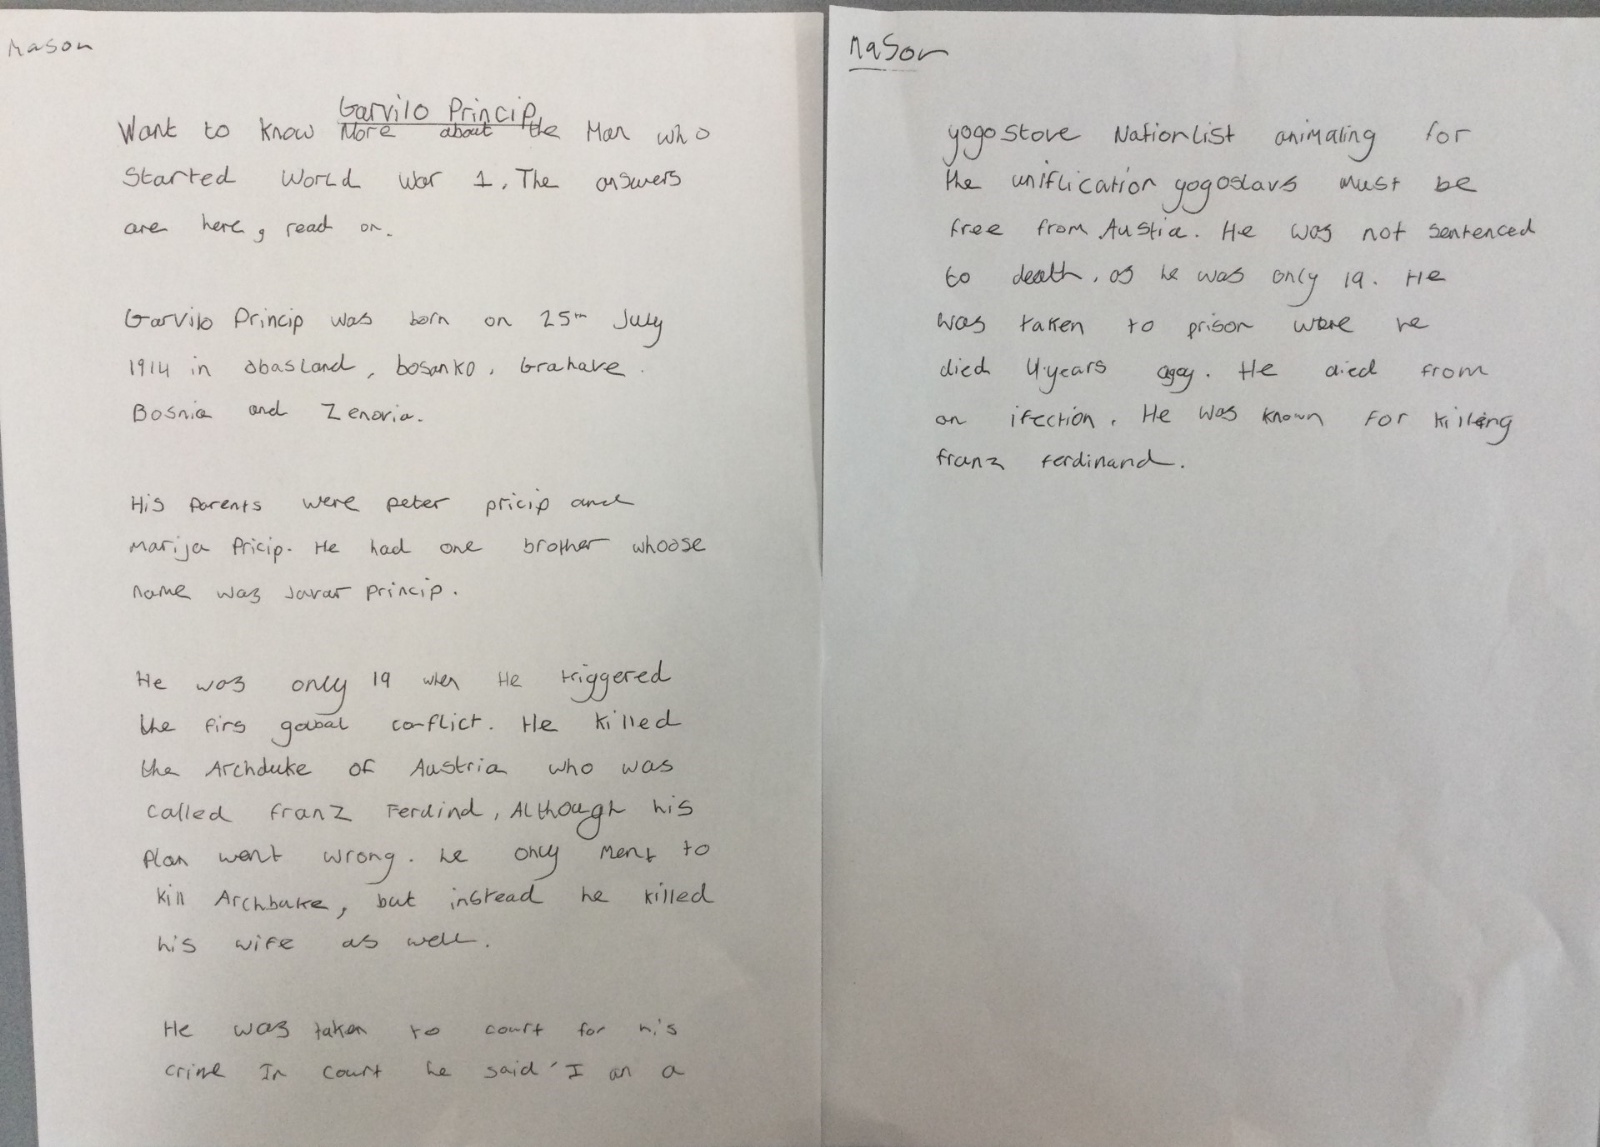 Mason
Garvilo Princip
Want to know More about the Man who
Started World War 1. The answers
are here, read on.
Garvilo Princip was born on 25th July
1914 in obasland, bosanko, Grahave.
Bosnia and Zenovia.
His Parents were peter pricip and
Marija Pricip. He had one brother whoose
name was Javar princip.
He was only 19 when He triggered
the firs gobal conflict. He killed
the Archduke of Austria who was
called franz Ferdind, Although his
Plan went wrong. he only ment to
kill Archbuke, but instead he killed
his wife as well.
He was taken to court for his
crime In court he said 'I am a
Mason
yogostove Nationlist animaling for
the uniflication yogoslavs must be
free from Austia. He was not sentenced
to death, as he was only 19. He
was taken to prison were he
died 4 years agoy. He died from
an ifection. He was known for killing
franz ferdinand.